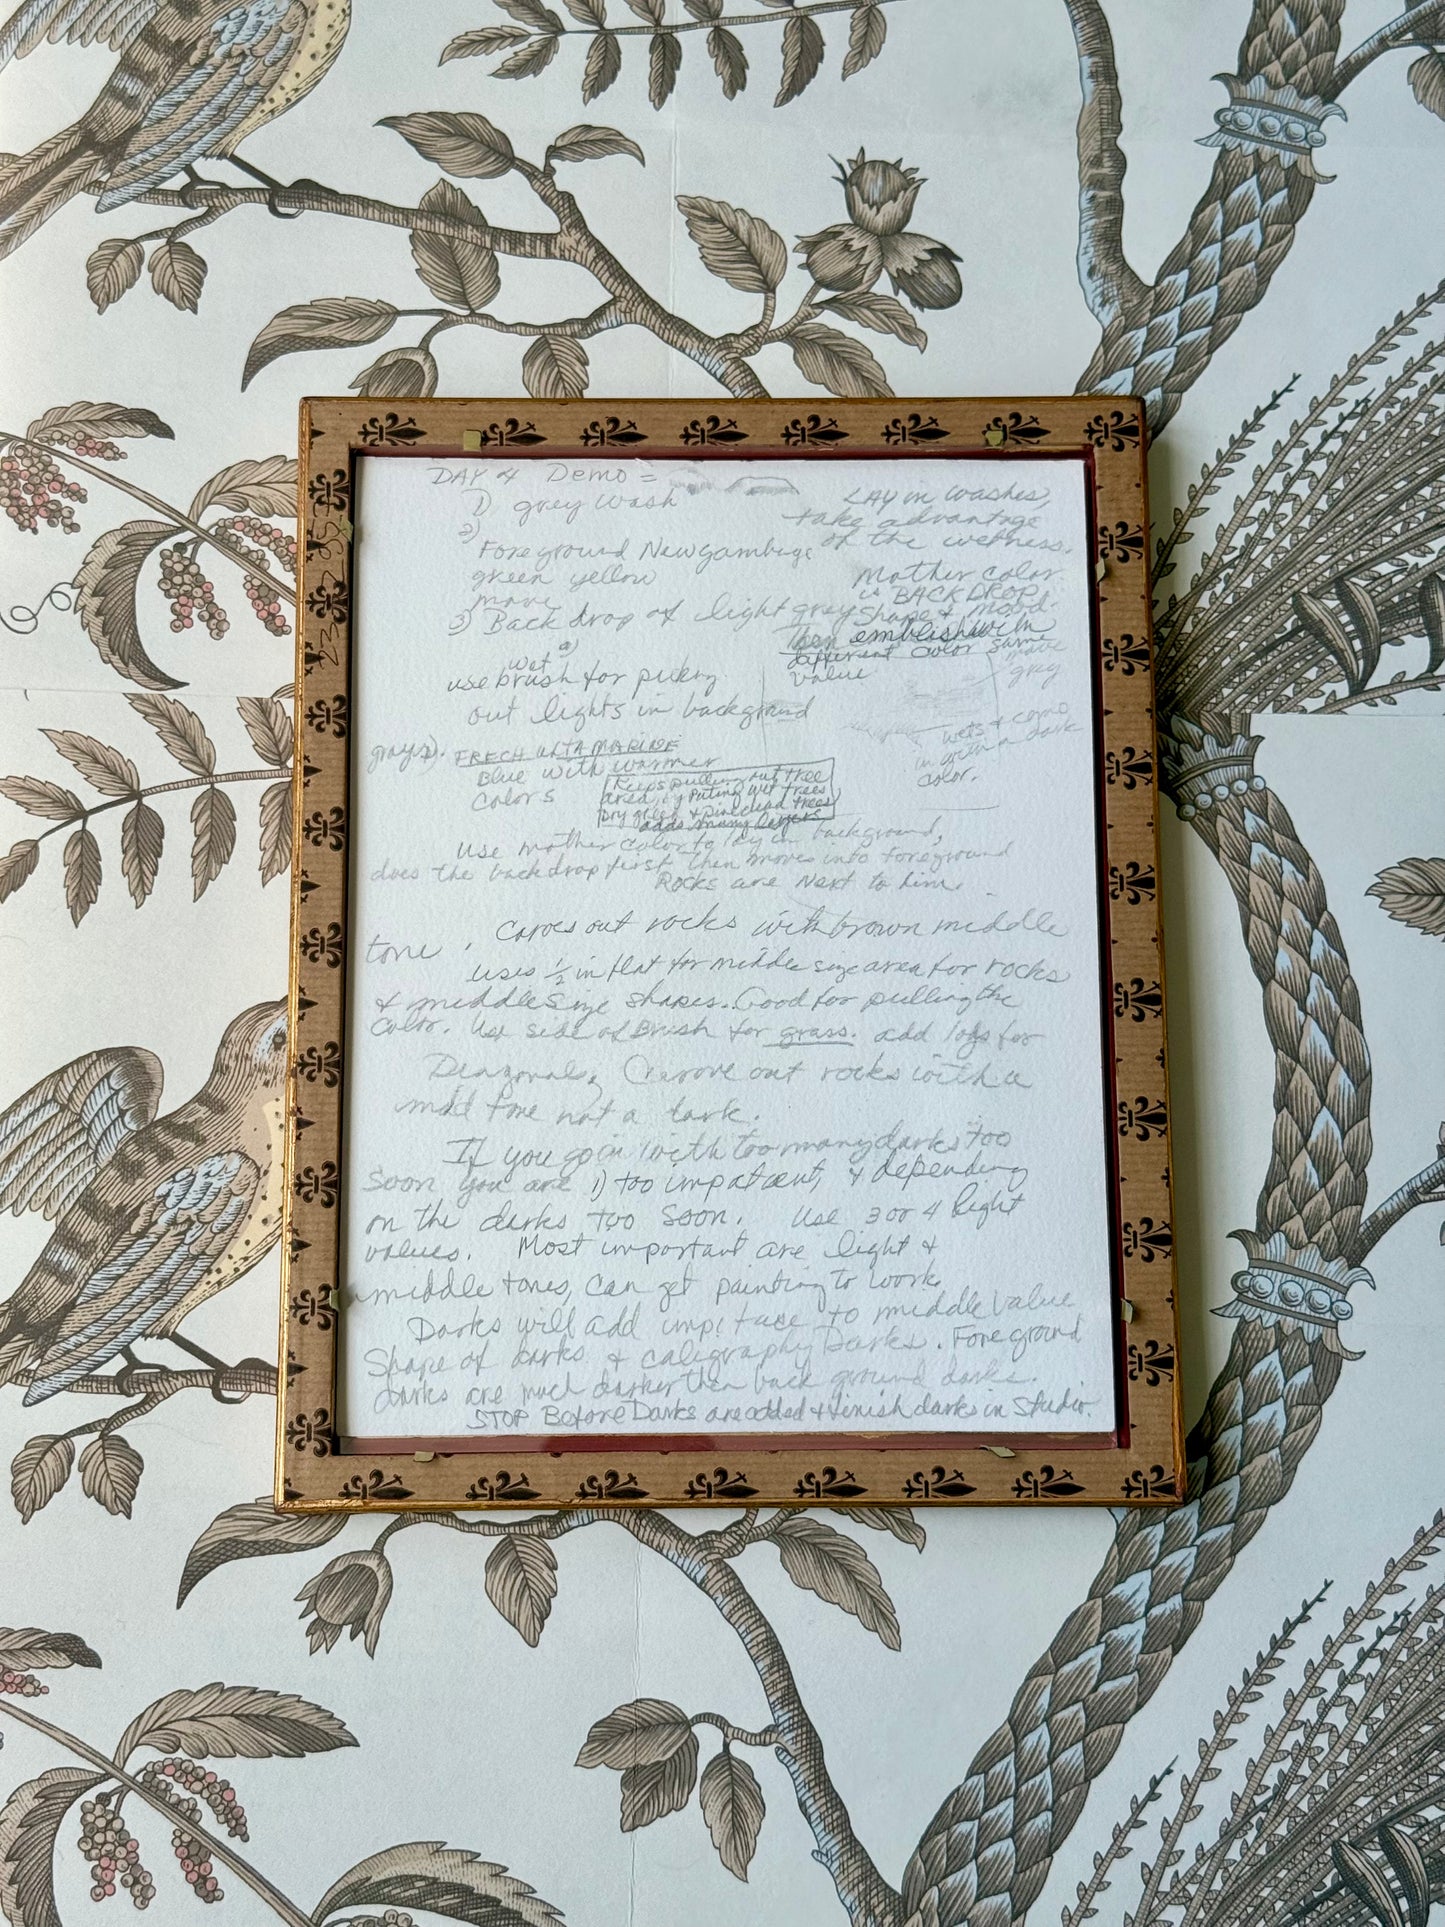 DAY 4 Demo =
1) grey wash
LAY in washes,
take advantage
of the wetness.
2)
Foreground New gambuge
green yellow
mauve
3) Back drop of light grey
Mother color
is BACKDROP
Shape & mood.
Then emblish with
different color same
value
mauve
grey
a)
wet
use brush for picking
out lights in background
wets & come
in with a dark
color.
grays). FRECH ULTAMARINE
Blue with warmer
Colors
Keeps pulling out tree
area, by puting wet trees
adds many layers
use mother color to lay in background,
does the backdrop first then moves into foreground
Rocks are Next to him.
Carves out rocks with brown middle
tone,
uses 1/2 in flat for middle size area for rocks
& middle size shapes. Good for pulling the
Color. Use side of Brush for grass. add logs for
Diagonals, Carove out rocks with a
mid tone not a dark.
If you go in with too many darks too
Soon you are 1) too impatient, & depending
on the darks too Soon. Use 3 or 4 light
values. Most important are light &
middle tones, Can get painting to work.
Darks will add impitace to middle value
Shape of darks & caligraphy Darks. Foreground
darks are much darker then back ground darks.
STOP Before Darks are added & finish darks in Studio.